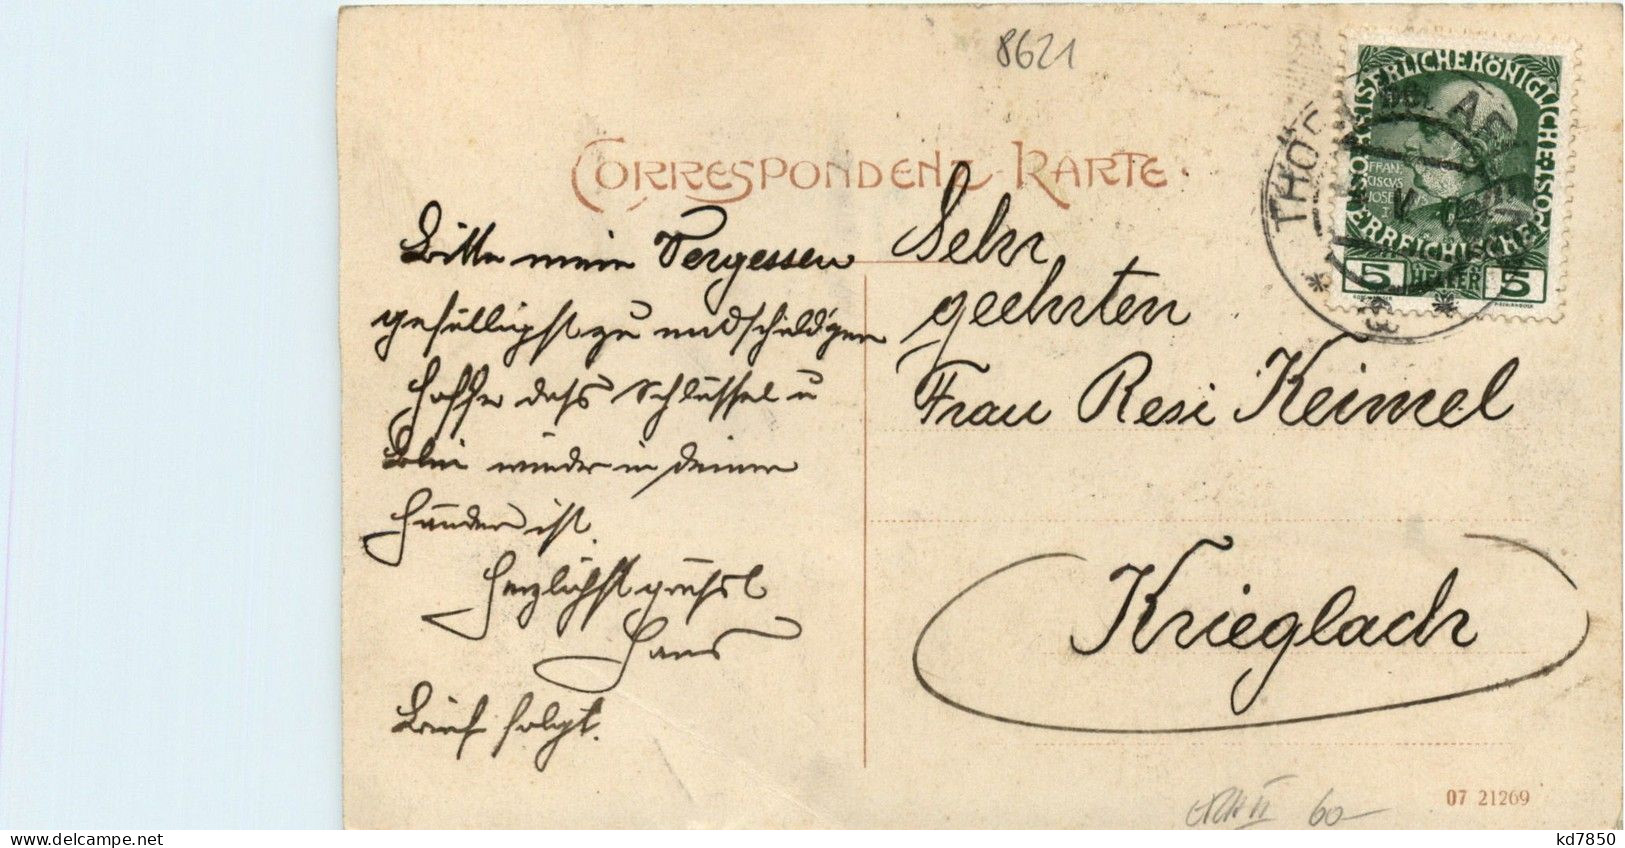 8621
CORRESPONDENZ-KARTE.
KAISERLICHE KÖNIGLICHE ÖSTERREICHISCHE POST
FRANCISCUS JOSEPHUS
5 HELLER 5
THÖ
Bitte mein Vergessen
gefälligst zu entschuldigen
hoffe dass Schlüssel u
wieder in deinen
Händen ist.
Herzlichst grüsst
Hans
Brief folgt.
Sehr
geehrten
Frau Resi Keimel
Krieglach
60-
07 21269
kd7850